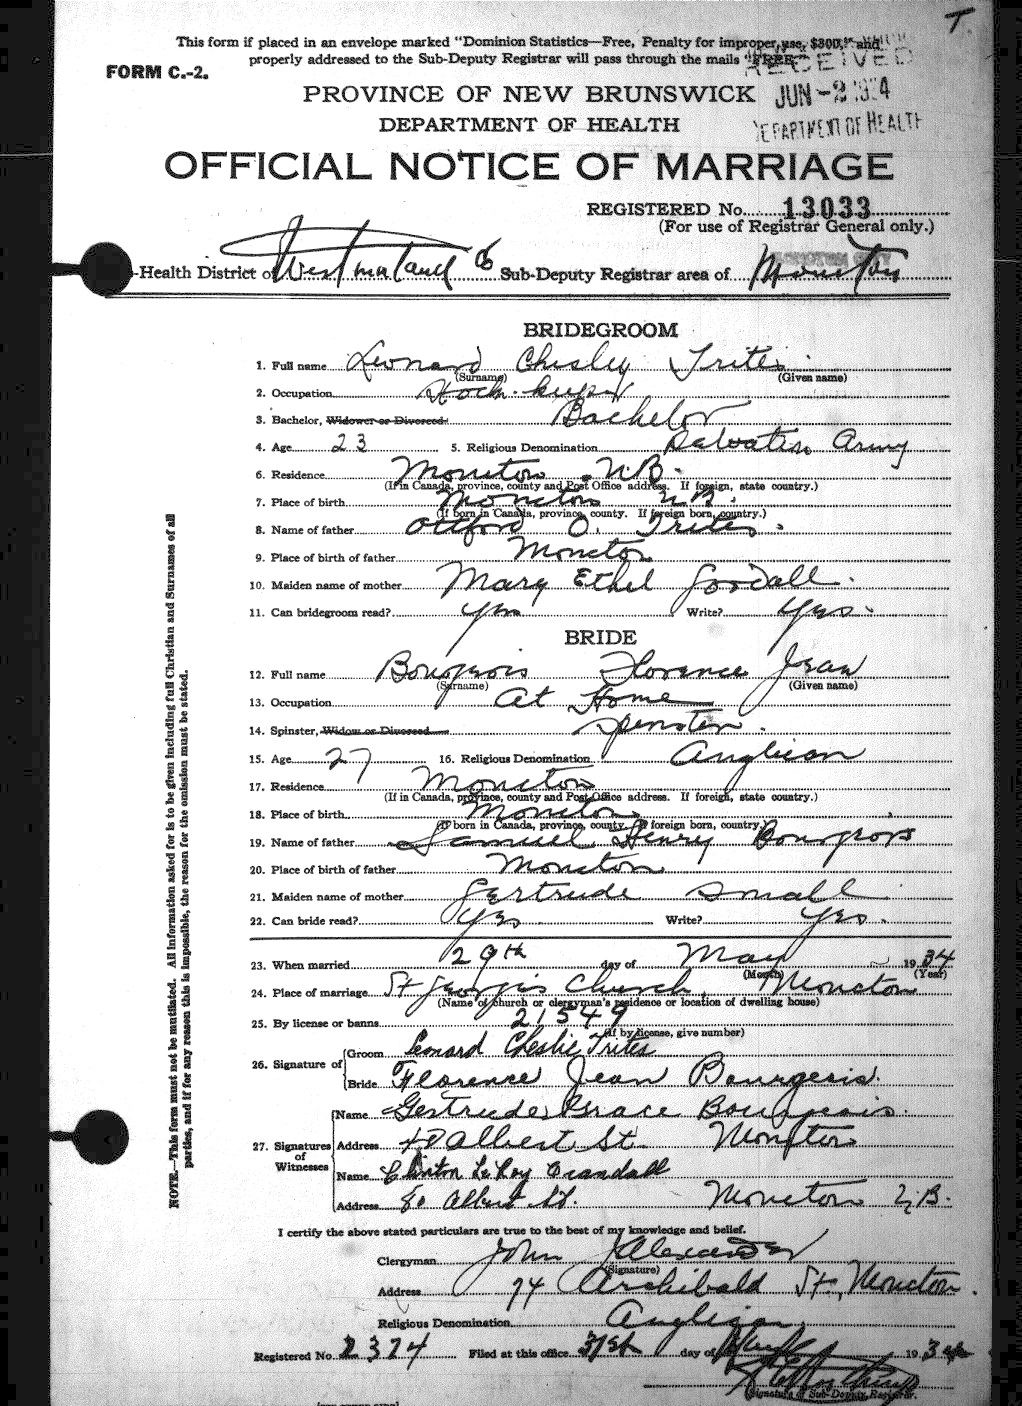 T
This form if placed in an envelope marked "Dominion Statistics—Free, Penalty for improper use, $300," and
properly addressed to the Sub-Deputy Registrar will pass through the mails "FREE."
RECEIVED
FORM C.-2.
PROVINCE OF NEW BRUNSWICK
JUN -2 1934
DEPARTMENT OF HEALTH
DEPARTMENT OF HEALTH
OFFICIAL NOTICE OF MARRIAGE
REGISTERED No. 13033
(For use of Registrar General only.)
Health District of Westmorland Co Sub-Deputy Registrar area of Moncton
BRIDEGROOM
1. Full name Leonard Chesley Trites
(Surname) (Given name)
2. Occupation Stock-keeper
3. Bachelor, Widower or Divorced Bachelor
4. Age 23 5. Religious Denomination Salvation Army
6. Residence Moncton N.B.
(If in Canada, province, county and Post Office address. If foreign, state country.)
7. Place of birth Moncton N.B.
(If born in Canada, province, county. If foreign born, country.)
8. Name of father O. Trites.
9. Place of birth of father Moncton
10. Maiden name of mother Mary Ethel Goodall.
11. Can bridegroom read? Yes Write? Yes.
BRIDE
12. Full name Bourgeois Florence Jean
(Surname) (Given name)
13. Occupation At Home
14. Spinster, Widow or Divorced Spinster.
15. Age 27 16. Religious Denomination Anglican
17. Residence Moncton
(If in Canada, province, county and Post Office address. If foreign, state country.)
18. Place of birth Moncton
(If born in Canada, province, county. If foreign born, country.)
19. Name of father Samuel Henry Bourgeois
20. Place of birth of father Moncton
21. Maiden name of mother Gertrude Small
22. Can bride read? Yes Write? Yes.
23. When married 29th day of May 1934
(Month) (Year)
24. Place of marriage St George's Church, Moncton
(Name of church or clergyman's residence or location of dwelling house)
25. By license or banns 21549
(If by license, give number)
26. Signature of Groom Leonard Cheslie Trites
Bride Florence Jean Bourgeois.
27. Signatures of Witnesses Name Gertrude Grace Bourgeois.
Address Albert St. Moncton
Name Clinton LeRoy Crandall
Address 80 Albert St. Moncton N.B.
I certify the above stated particulars are true to the best of my knowledge and belief.
Clergyman John J Alexander
(Signature)
Address 74 Archibald St., Moncton.
Religious Denomination Anglican
Registered No. 2374 Filed at this office 31st day of May 1934
Signature of Sub-Deputy Registrar.
NOTE.—This form must not be mutilated. All information asked for is to be given including full Christian and Surnames of all
parties, and if for any reason this is impossible, the reason for the omission must be stated.